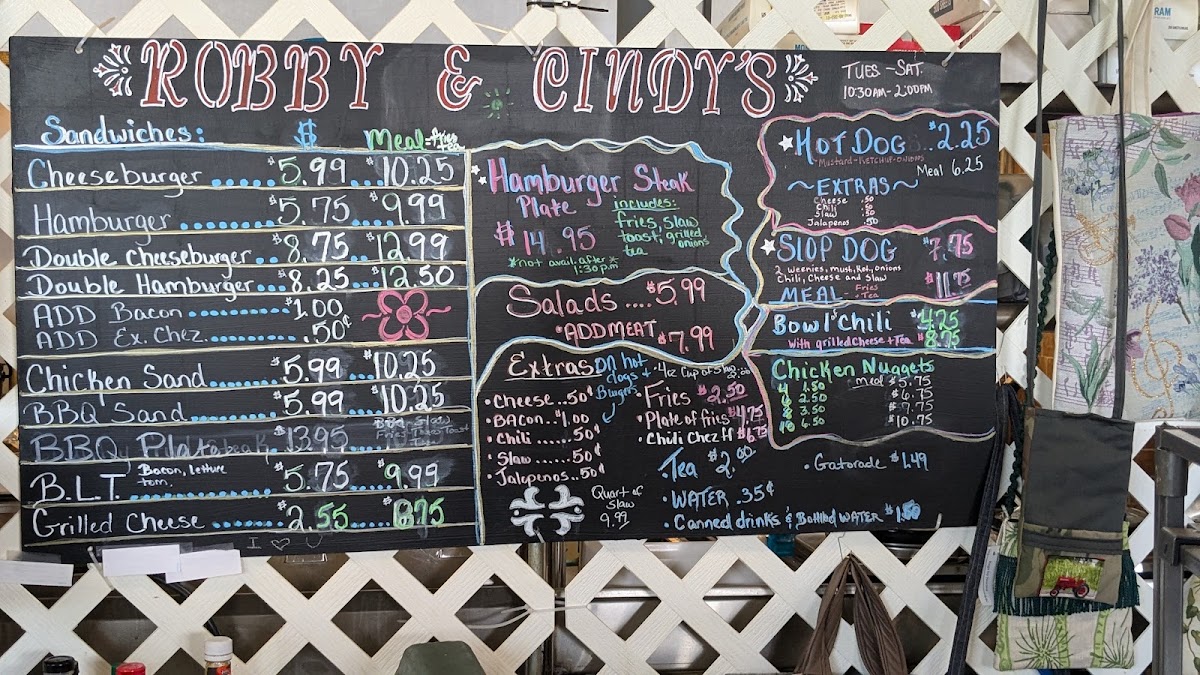 ROBBY & CINDY'S
TUES.-SAT.
10:30AM-2:00PM
Sandwiches: $ Meal-Fries Tea
Cheeseburger......$5.99....$10.25
Hamburger.........$5.75....$9.99
Double cheeseburger..$8.75...$12.99
Double Hamburger....$8.25...$12.50
ADD Bacon.........$1.00
ADD Ex. Chez..........50¢
Chicken Sand.......$5.99...$10.25
BBQ Sand..........$5.99....$10.25
BBQ Plate 13.95
B.L.T. Bacon, lettuce tom. $5.75....$9.99
Grilled Cheese.......$2.55....$8.75
I ♡
Hamburger Steak
Plate
$14.95
includes:
fries, slaw
toast, grilled
onions
tea
*not avail. after*
1:30 p.m
Salads....$5.99
*ADD MEAT
$7.99
Extras ON hot dogs + Burgers
•Cheese...50¢
•BACON...$1.00
•Chili......50¢
•Slaw......50¢
•Jalapenos..50¢
Quart of
Slaw
9.99
•4oz Cup of Slaw
•Fries $2.50
•Plate of fries $4.75
•Chili Chez ff $6.75
•Tea $2.00
•WATER .35¢
•Canned drinks & Bottled WATER $1.50
•Gatorade $1.49
HOT DOG...$2.25
MUSTARD-KETCHUP-ONIONS
Meal 6.25
~EXTRAS~
Cheese .50
Chili .50
Slaw .50
Jalapenos .50
SLOP DOG $7.75
2 weenies, must, Ket, onions
Chili, Cheese and Slaw
MEAL Fries + Tea $11.75
Bowl Chili $4.25
with grilled Cheese + Tea $8.75
Chicken Nuggets
4 1.50 meal $5.75
6 2.50 $6.75
8 3.50 $7.75
6.50 $10.75
RAM